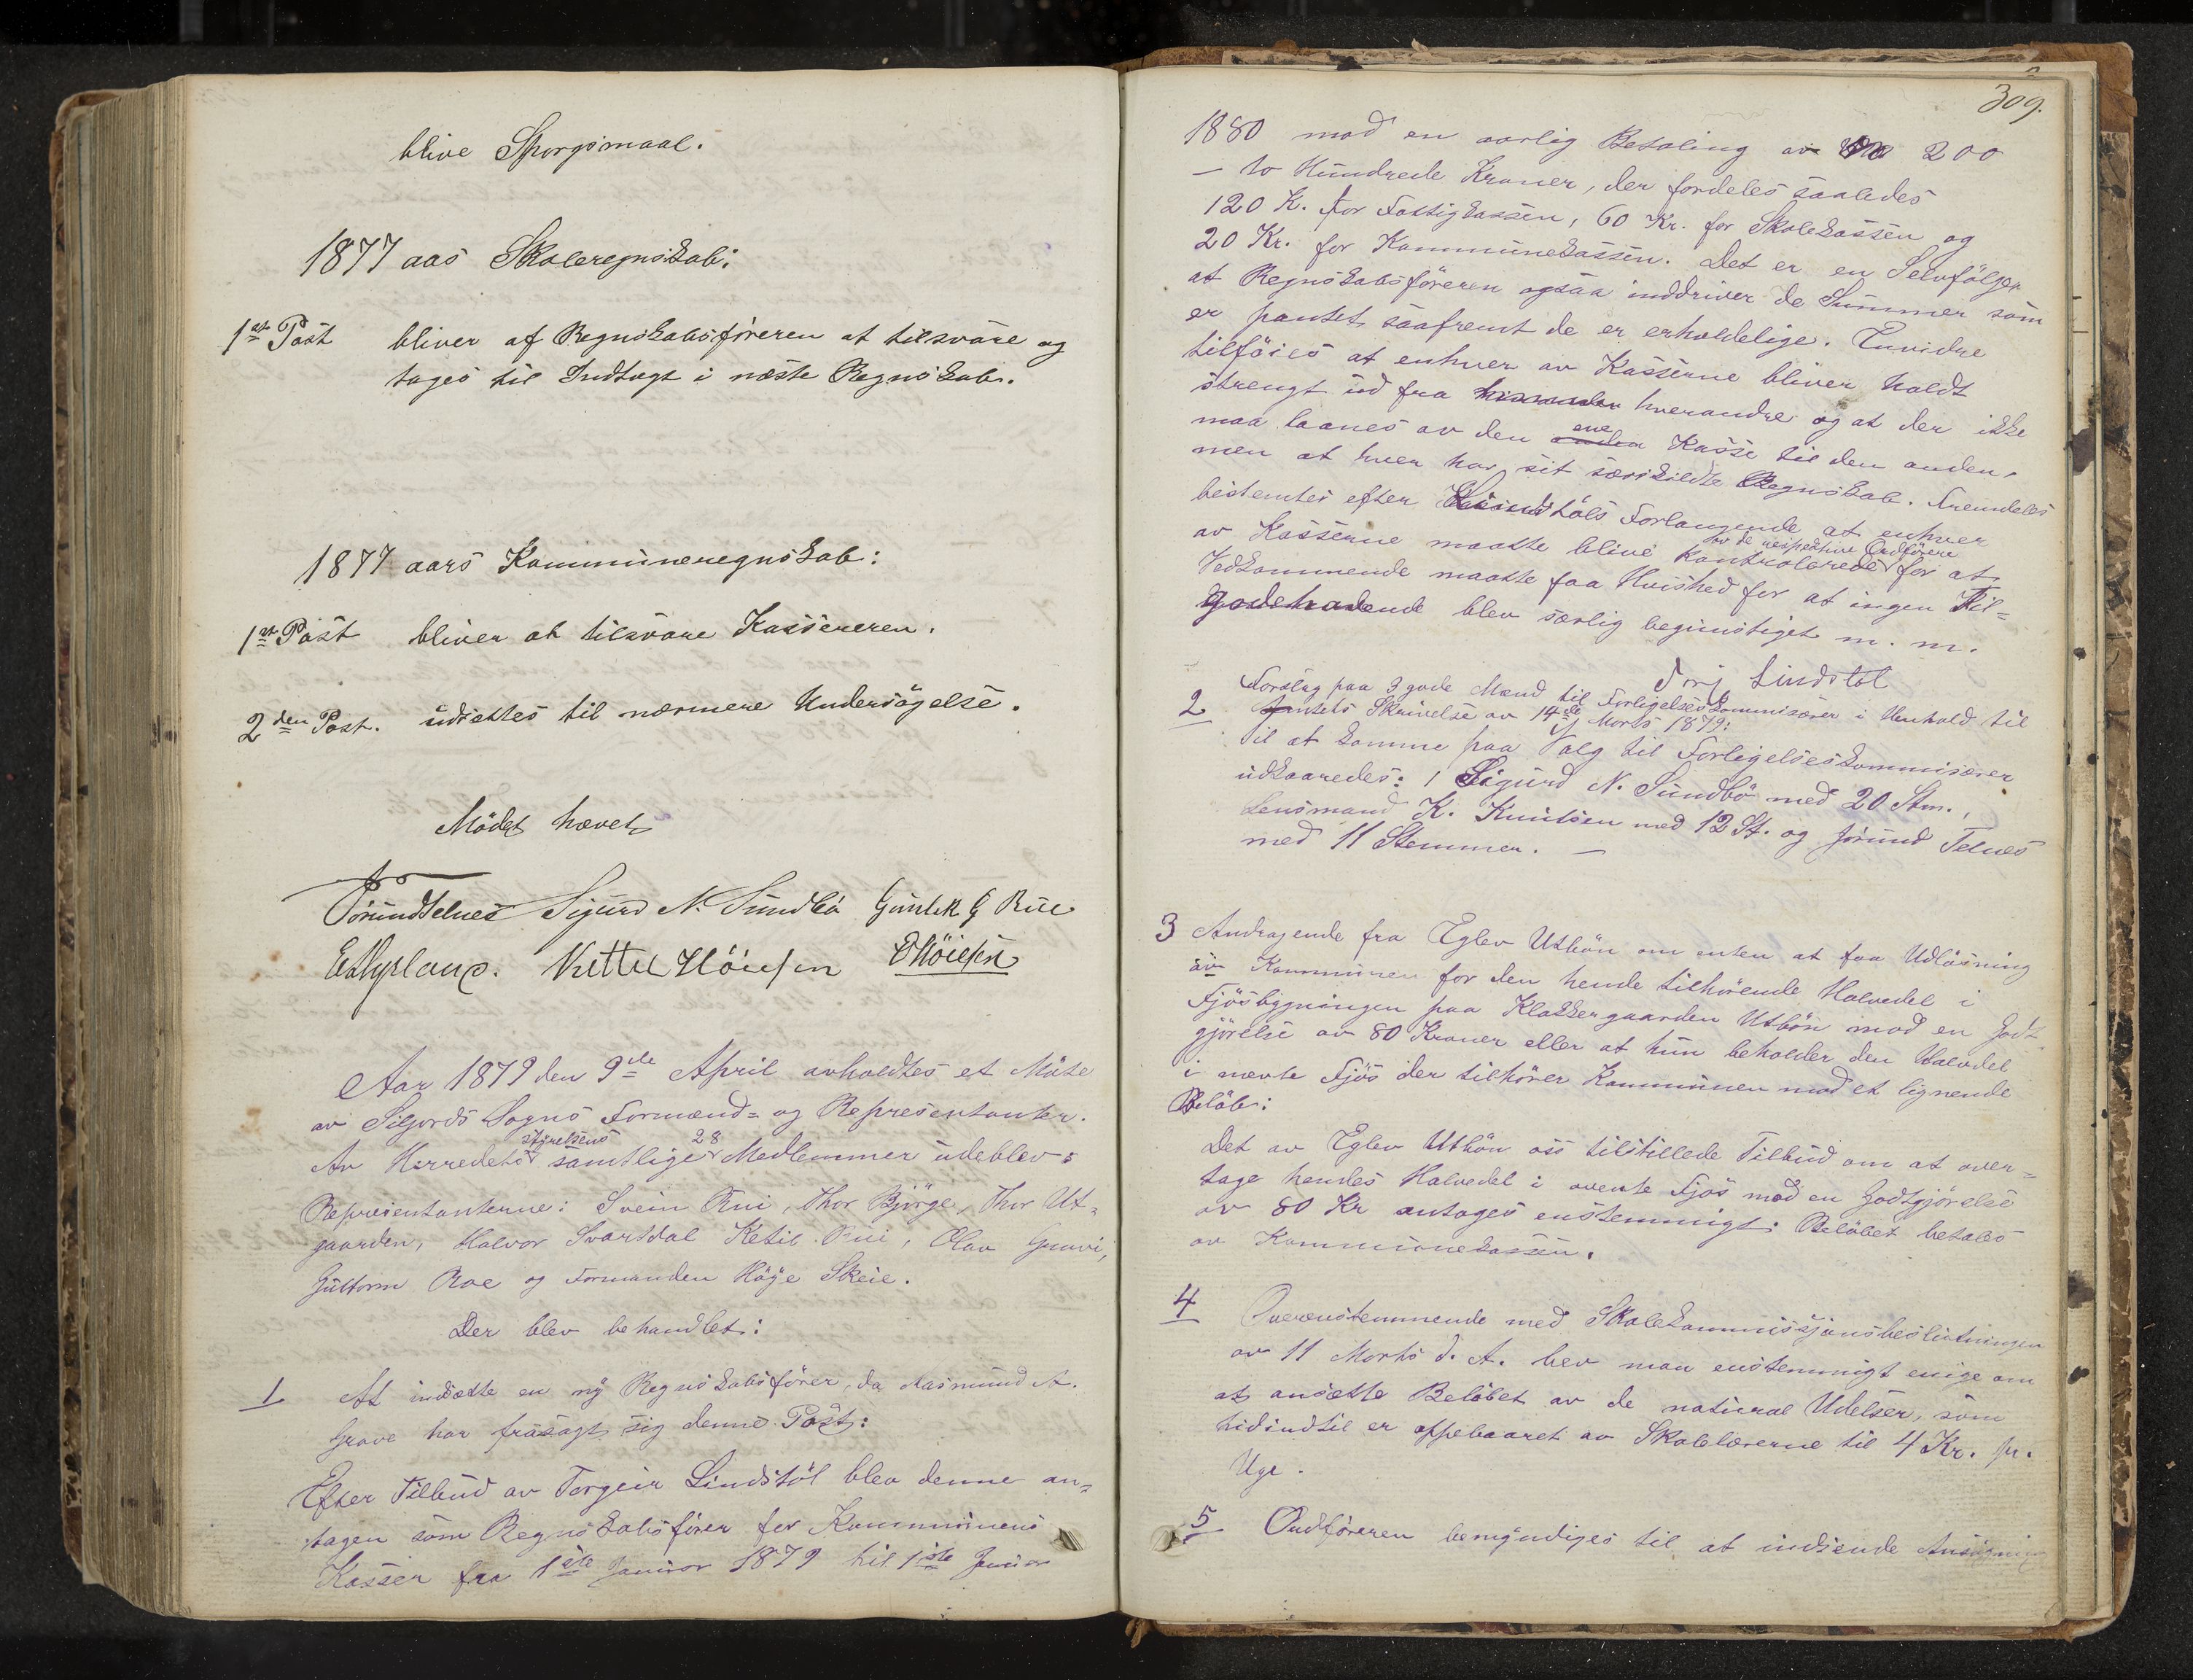 blive Sporgsmaal.
1877 aas Skoleregnskab:
1ste Post bliver af Regnskabsföreren at tilsvare og
tages til Indtægt i næste Regnskab.
1877 aars Kommuneregnskab:
1ste Post bliver at tilsvare Kassereren.
2den Post. udsættes til nærmere Undersögelse.
Mödet hævet
Jórundtelnes Sigurd N. Sundbö Gunlek G Rue
Kittel Höiesen OHöiesen
Aar 1879 den 9de April avholdtes et Möte
av Siljords Sogns Formænd= og Representanter.
Av Herredets styrelsens samtlige 28 Medlemmer udeblev:
Representanterne: Svein Rui, Thor Björge, Thor Ut=
gaarden, Halvor Svartdal Ketil Rui, Olav Gravi,
Guttorm Roe og Formanden Höje Skeie.
Der blev behandlet:
1 At indsætte en ny Regnskabsförer, da Aasmund A.
Grave har frasagt sig denne Post:
Efter Tilbud av Torgeir Lindstöl blev denne an=
tagen som Regnskabsförer for Kommunens
Kasser fra 1ste Januar 1879 til 1ste Januar
309.
1880 mod en aarlig Betaling av 200
— to Hundrede Kroner, der fordeles saaledes
120 K. for Fattigkassen, 60 Kr. for Skolekassen og
20 Kr. for Kommunekassen. Det er en Selvfölge
at Regnskabsföreren ogsaa inddriver de Summer som
er pantet saafremt de er erholdelige. Envidre
tilföies at enhver av Kasserne bliver holdt
strengt ud fra hverandre og at der ikke
maa laanes av den ene Kasse til den anden,
men at hver har sit særskildte Regnskab. Fremdeles
bestemtes efter Lindstöls Forlangende at enhver
av Kasserne maatte blive kontrolerede av de respektive Ordförere for at
Vedkommende maatte faa Vished for at ingen Til=
godehavende blev særlig begunstiget m. m.
Torj Lindstöl
2 Forslag paa 3 gode Mænd til Forligelseskommisærer i Henhold til
Amtets Skrivelse av 14de Marts 1879:
Til at komme paa Valg til Forligelseskommisærer
udkaaredes: 1 Sigurd N. Sundbö med 20 Stm.,
Lensmand K. Knutsen med 12 St. og Jórund Telnes
med 11 Stemmer. —
3 Andragende fra Eglev Utbön om enten at faa Udlösning
av Kommunen for den hende tilhörende Halvdel i
Fjösbygningen paa Klokkergaarden Utbön mod en Godt
gjörelse av 80 Kroner eller at hun beholder den Halvdel
i nævte Fjös der tilhörer Kommunen mod et lignende
Belöb:
Det av Eglev Utbön oss tilstillede Tilbud om at over=
tage hendes Halvedel i ovente Fjös mod en Godtgjörelse
av 80 Kr antages enstemmigt: Belöbet betales
av Kommunekassen.
4 Overenstemmende med Skolekommissjonsbeslutningen
av 11 Marts d. A. blev man enstemmigt enige om
at ansætte Belöbet av de natural Udelser, som
hidindtil er oppebaaret av Skolelærerne til 4 Kr. pr.
Uge.
5 Ordföreren bemyndiges til at indsende Ansögning